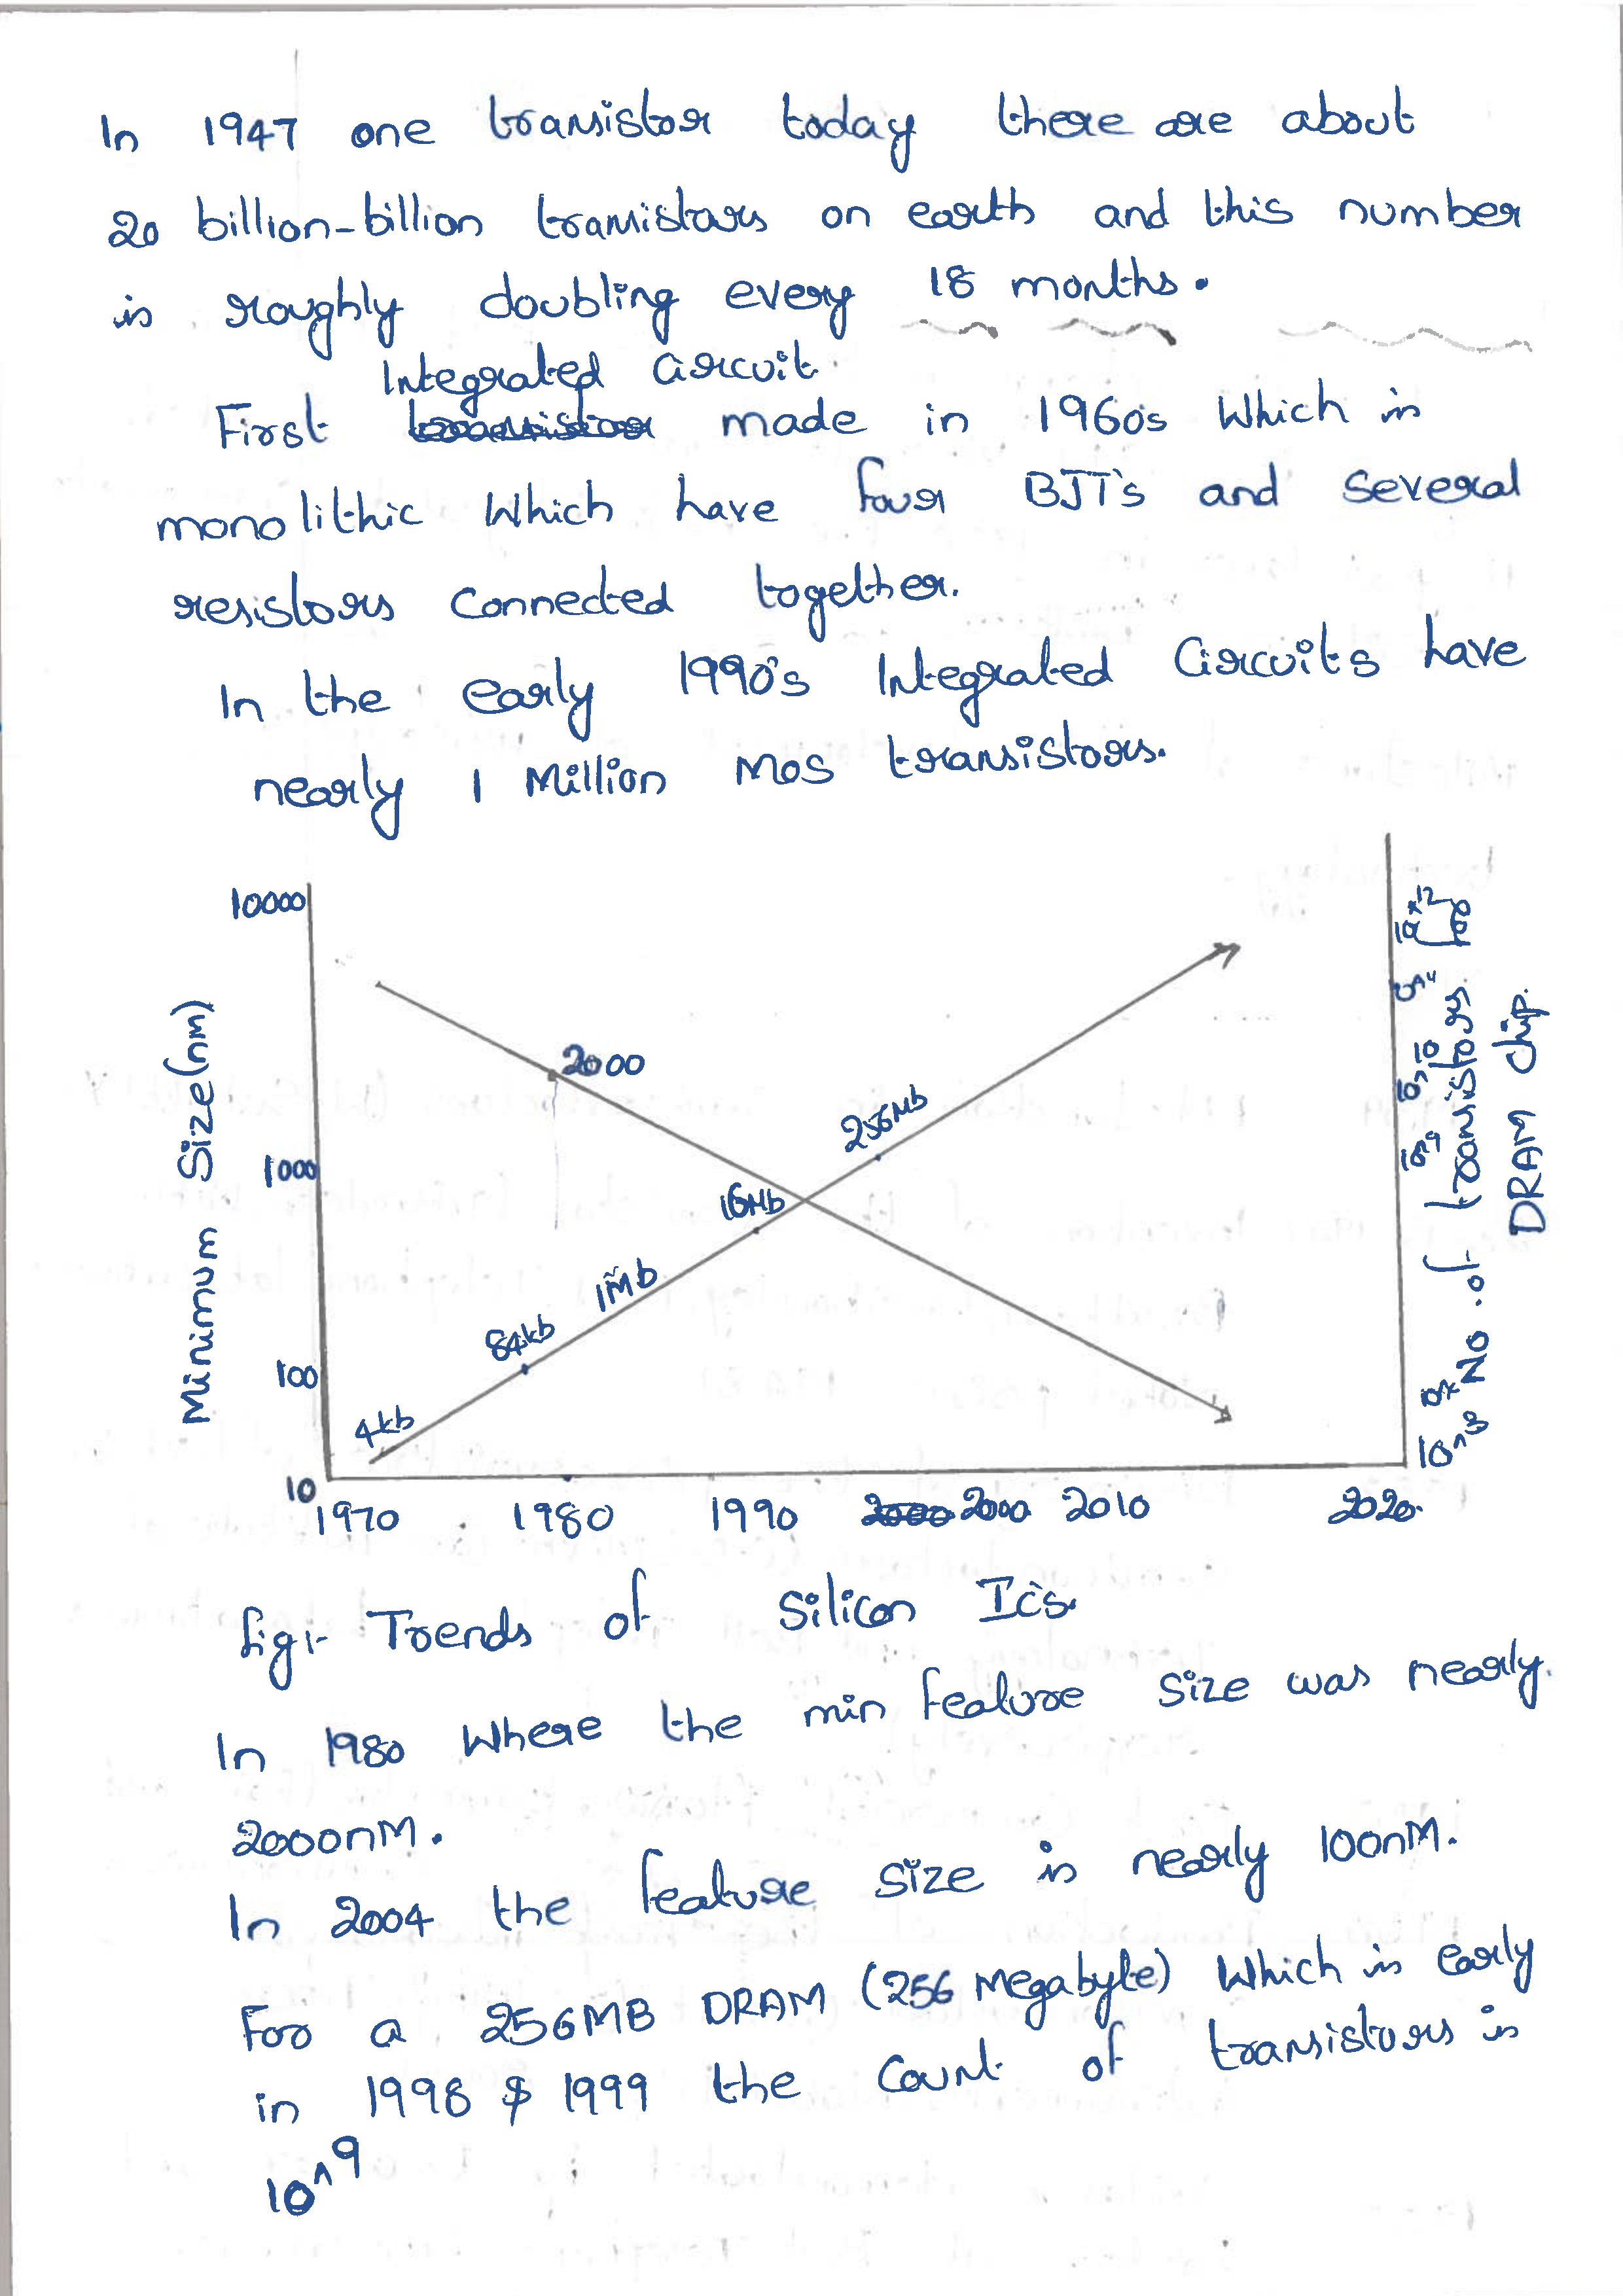 In 1947 one transistor today there are about
20 billion-billion transistors on earth and this number
is roughly doubling every 18 months.
Integrated Circuit
First transistor made in 1960s Which is
monolithic Which have four BJT's and several
resistors connected together.
In the early 1990's Integrated Circuits have
nearly 1 Million MOS transistors.
10000
1000
100
10
Minimum Size(nm)
2000
256Mb
16Mb
1Mb
84kb
4kb
10^12
10^10
10^9
10^3
No. of transistors per
DRAM chip.
1970 1980 1990 2000 2000 2010 2020
fig:- Trends of Silicon Ic's.
In 1980 Where the min feature Size was nearly.
2000nM.
In 2004 the feature Size is nearly 100nM.
For a 256MB DRAM (256 Megabyte) Which is early
in 1998 & 1999 the Count of transistors is
10^9